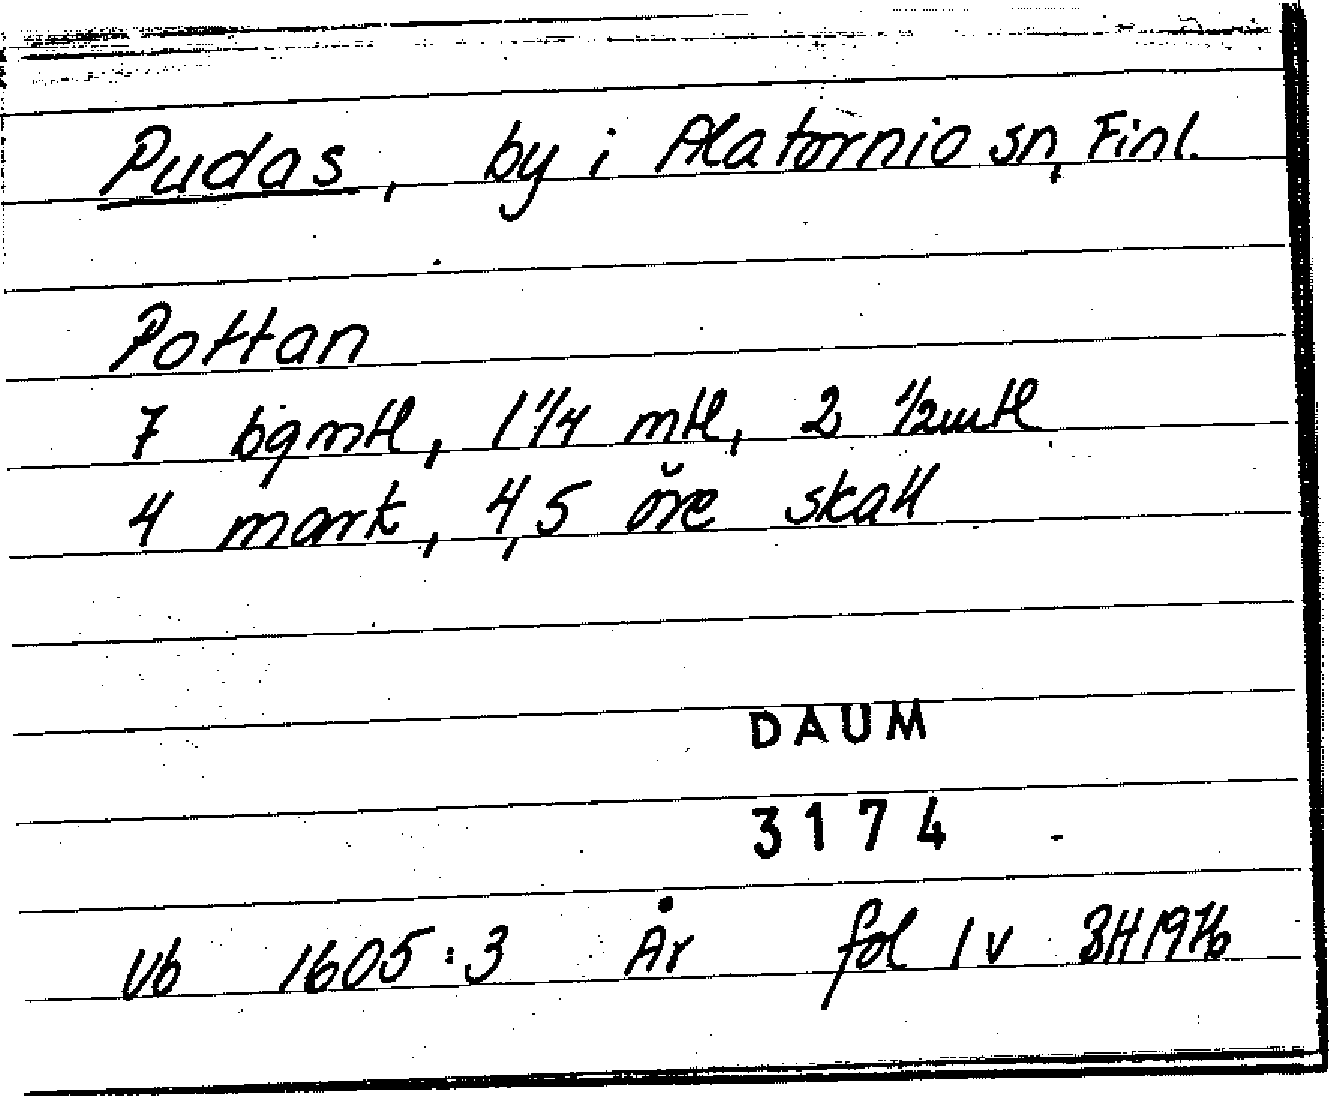 Pudas, by i Alatornio sn, Finl.
Pottan
7 bgmtl, 1 1/4 mtl, 2 1/2mtl
4 mark, 4,5 öre skatt
DAUM
3174
Vb 1605:3 År fol 1v BH1976